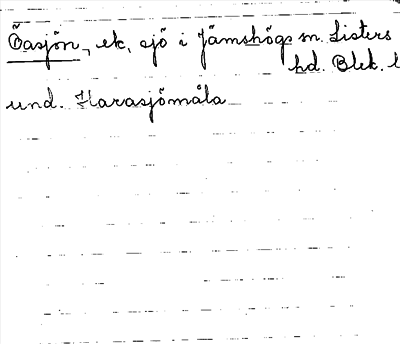 Öasjön, ek. sjö i Jämshögs sn. Listers
hd. Blek. l
und. Harasjömåla